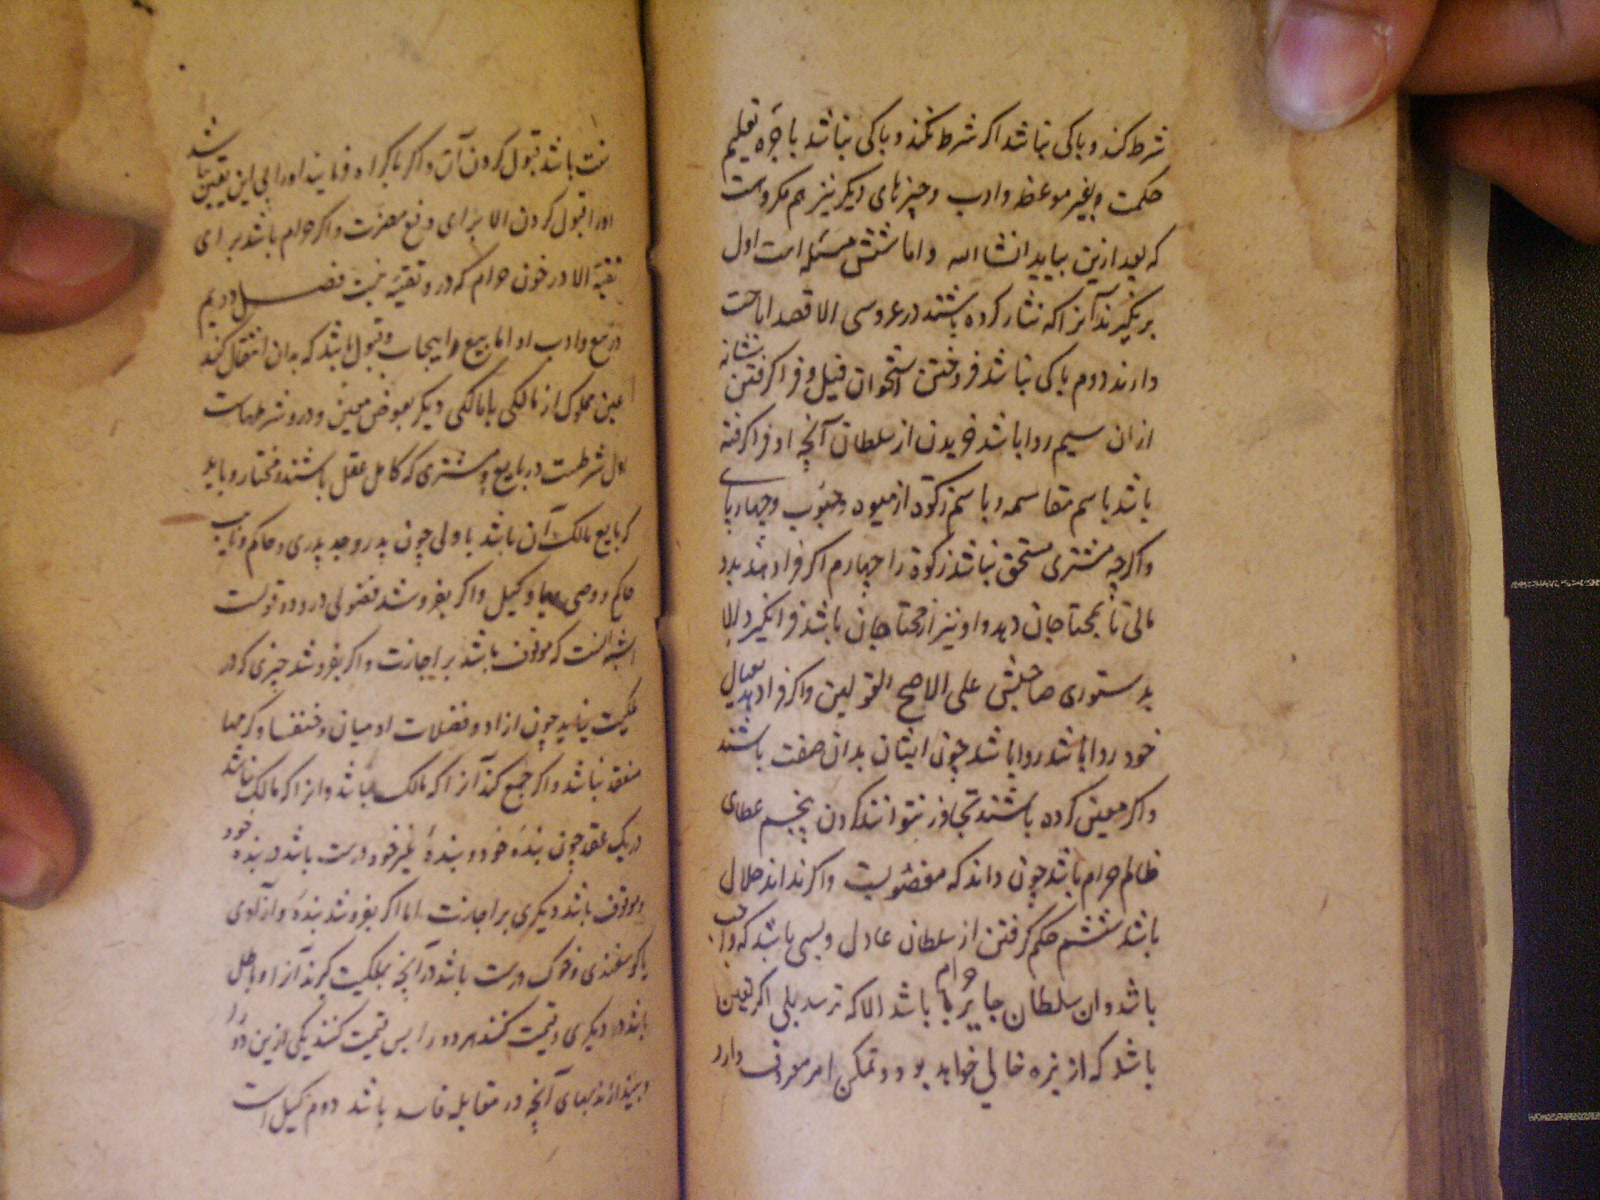 شرط کند و باکی نباشد اکر شرط نکند و باکی نباشد باجره تعلیم
حکمت و بغیر موعظه و ادب و چیزهای دیکر نیز هم مکروهست
که بعد ازین بیاید انشاالله و اما شش مسئله است اول
برنکیرند آنرا که نثار کرده باشند در عروسی الا قصد اباحت
دارند دوم باکی نباشد فروختن استخوان فیل و فراکرفتن شانه
ازان سیم روا باشد خریدن از سلطان آنچه او فراکرفته
باشد باسم مقاسمه و باسم زکوة از میوه و حبوب و چهارپای
و اکرچه مشتری مستحق نباشد زکوة را چهارم اکر فرا دهند بدو
مالی تا بمحتاجان دهد و او نیز از محتاجان باشد فرا نکیرد الا
بدستوری صاحبش علی الاصح القولین و اکر فرا دهد بعیال
خود روا باشد روا باشد چون ایشان بدان صفت باشند
و اکر معین کرده باشند تجاوز نتوانند کردن پنجم عطای
ظالم حرام باشد چون داند که مغصوبست و اکر نداند حلال
باشد ششم حکم کرفتن از سلطان عادل و بسی باشد که واجب
باشد و ان سلطان جایر حرام باشد الا که ترسد بلی اکر تعین
باشد که از بزه خالی خواهد بود و تمکن امر معروف دارد
سنت باشد قبول کردن آن و اکر باکراه فرمایند اورا بی این یقین نباشد
اورا قبول کردن الا برای دفع مضرت و اکر حرام باشد برای
تقیه الا در خون حرام که درو تقیه نیست فصل دویم
در بیع و ادب او اما بیع و ایجاب و قبول باشد که بدان انتقال کند
عین مملوک از مالکی بامالکی دیکر بعوض معین و درو شرطهاست
اول شرطست در بایع و مشتری که کامل عقل باشند و مختار و باید
که بایع مالک آن باشد یا ولی چون پدر و جد پدری و حاکم و نایب
حاکم و وصی یا وکیل و اکر بفروشد فضولی درو دو قولست
اشبه انست که موقوف باشد بر اجازت و اکر بفروشد چیزی که در
ملکیت نیاید چون ازاد و فضلات ادمیان و خنفسا و کرمها
منعقد نباشد و اکر جمع کند آنرا که مالک باشد و انرا که مالک نباشد
در یک عقد چون بندهٔ خود و بندهٔ غیر خود درست باشد در بنده خود
و موقوف باشد دیکری بر اجازت اما اکر بفروشد بنده و آزادی
یا کوسفندی و خوک درست باشد در آنچه بملکیت کیرند آنرا و باطل
باشد در دیکری و قیمت کنند هر دو را پس قیمت کنند یکی ازین دو را
و بیندازند بهای آنچه در مقابله فاسد باشد دوم کیل است